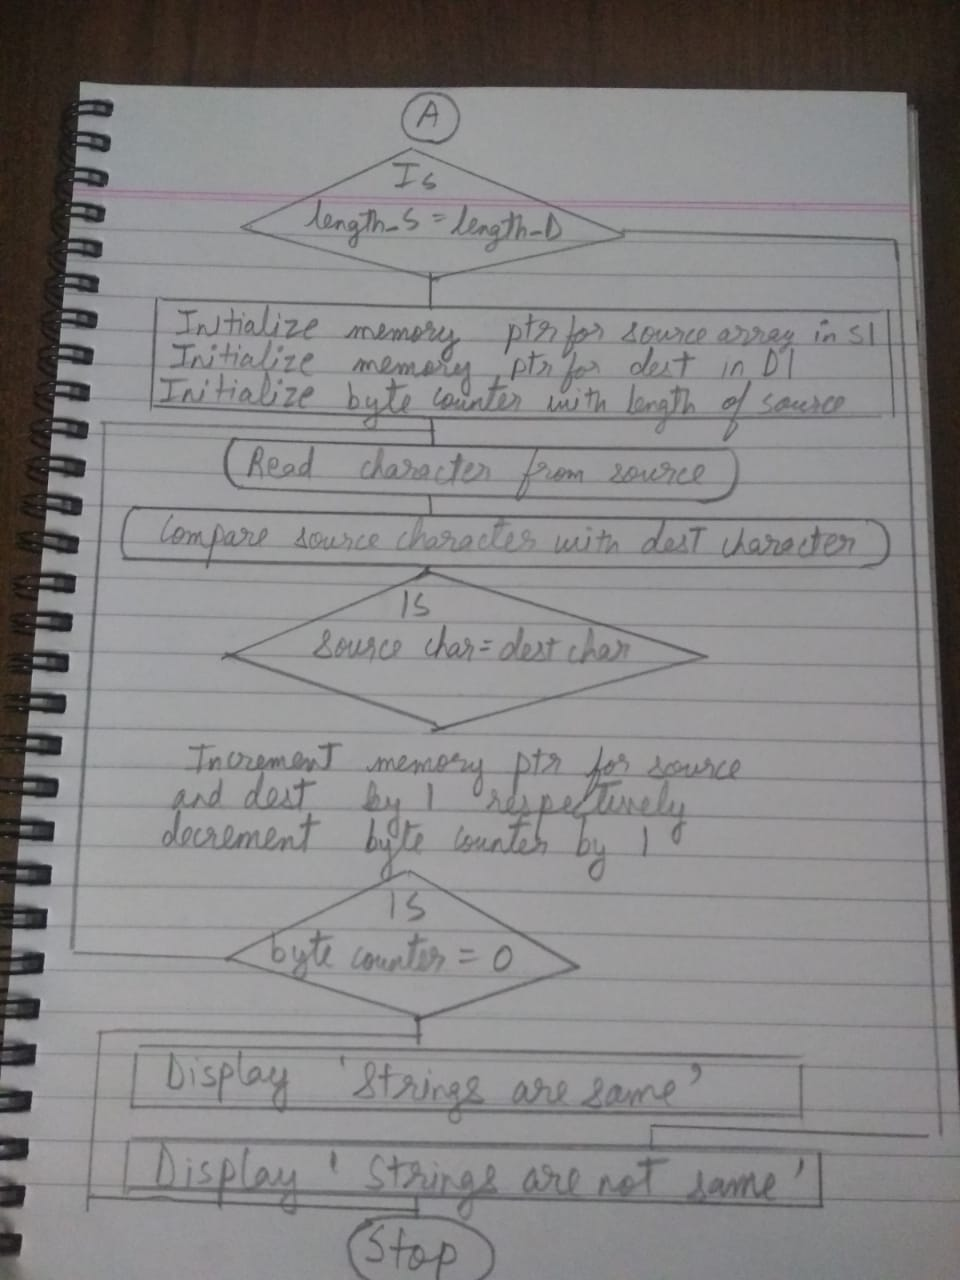 A
Is
length_S = length_D
Initialize memory ptr for source array in SI
Initialize memory ptr for dest in DI
Initialize byte counter with length of source
Read character from source
Compare source character with dest character
IS
source char = dest char
Increment memory ptr for source
and dest by 1 respectively
decrement byte counter by 1
IS
byte counter = 0
Display 'Strings are same'
Display 'Strings are not same'
Stop